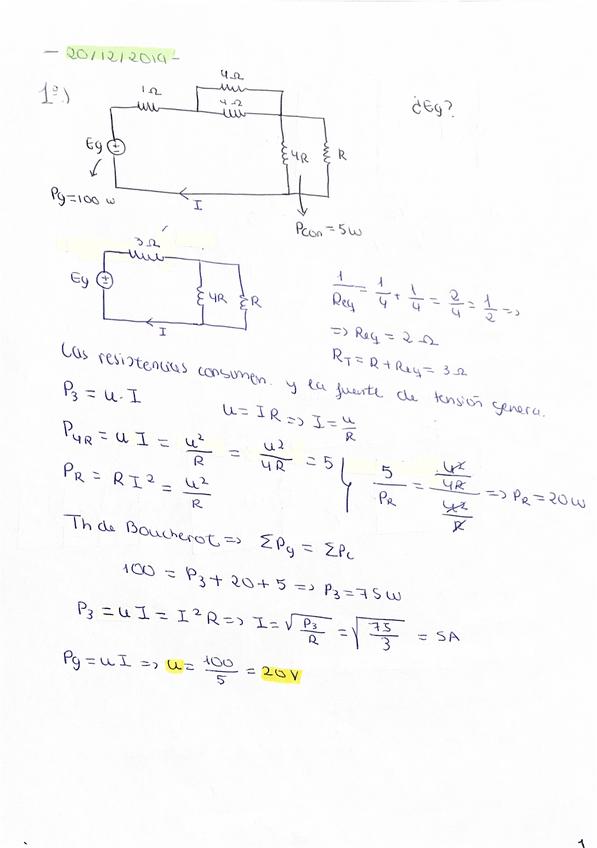 - 20/12/2019 -
1º.)
¿Eg?
4Ω
1Ω
4Ω
Eg
4R
R
Pg = 100 w
I
Pcon = 5w
3Ω
Eg
4R
R
I
1/Req = 1/4 + 1/4 = 2/4 = 1/2 =>
=> Req = 2Ω
RT = R + Req = 3Ω
Las resistencias consumen y la fuente de tensión genera.
P3 = u·I
u = IR => I = u/R
P4R = u I = u²/R = u²/4R = 5
PR = R I² = u²/R
5/PR = (u²/4R)/(u²/R) => PR = 20w
Th de Boucherot => ΣPg = ΣPc
100 = P3 + 20 + 5 => P3 = 75w
P3 = u I = I² R => I = √(P3/R) = √(75/3) = 5A
Pg = u I => u = 100/5 = 20V
1